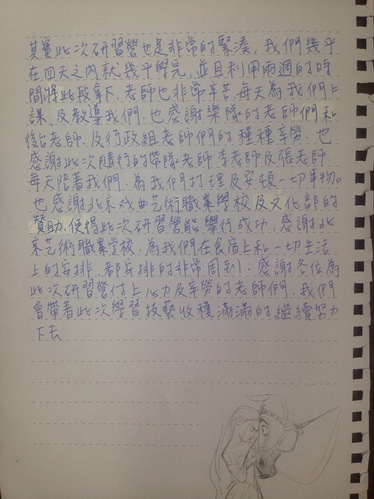 其實此次研習營也是非常的緊湊,我們幾乎
在四天之內就幾乎學完,並且利用兩週的時
間將此段拿下、老師也非常辛苦、每天為我們上
課、及教導我們、也感謝樂隊的老師們和
後台老師、及行政組老師們的種種辛勞、也
感謝此次隨行的帶隊老師李老師及張老師
每天陪著我們、為我們打理及安頓一切事物。
也感謝北京戏曲艺術職業學校及文化部的
贊助、使得此次研習營能舉行成功、感謝北
京艺術職業學校、為我們在食宿上和一切生活
上的安排、都安排的非常周到、感謝各位為
此次研習營付上心力及辛勞的老師們、我們
會帶著此次學習技藝收穫滿滿的繼續努力
下去